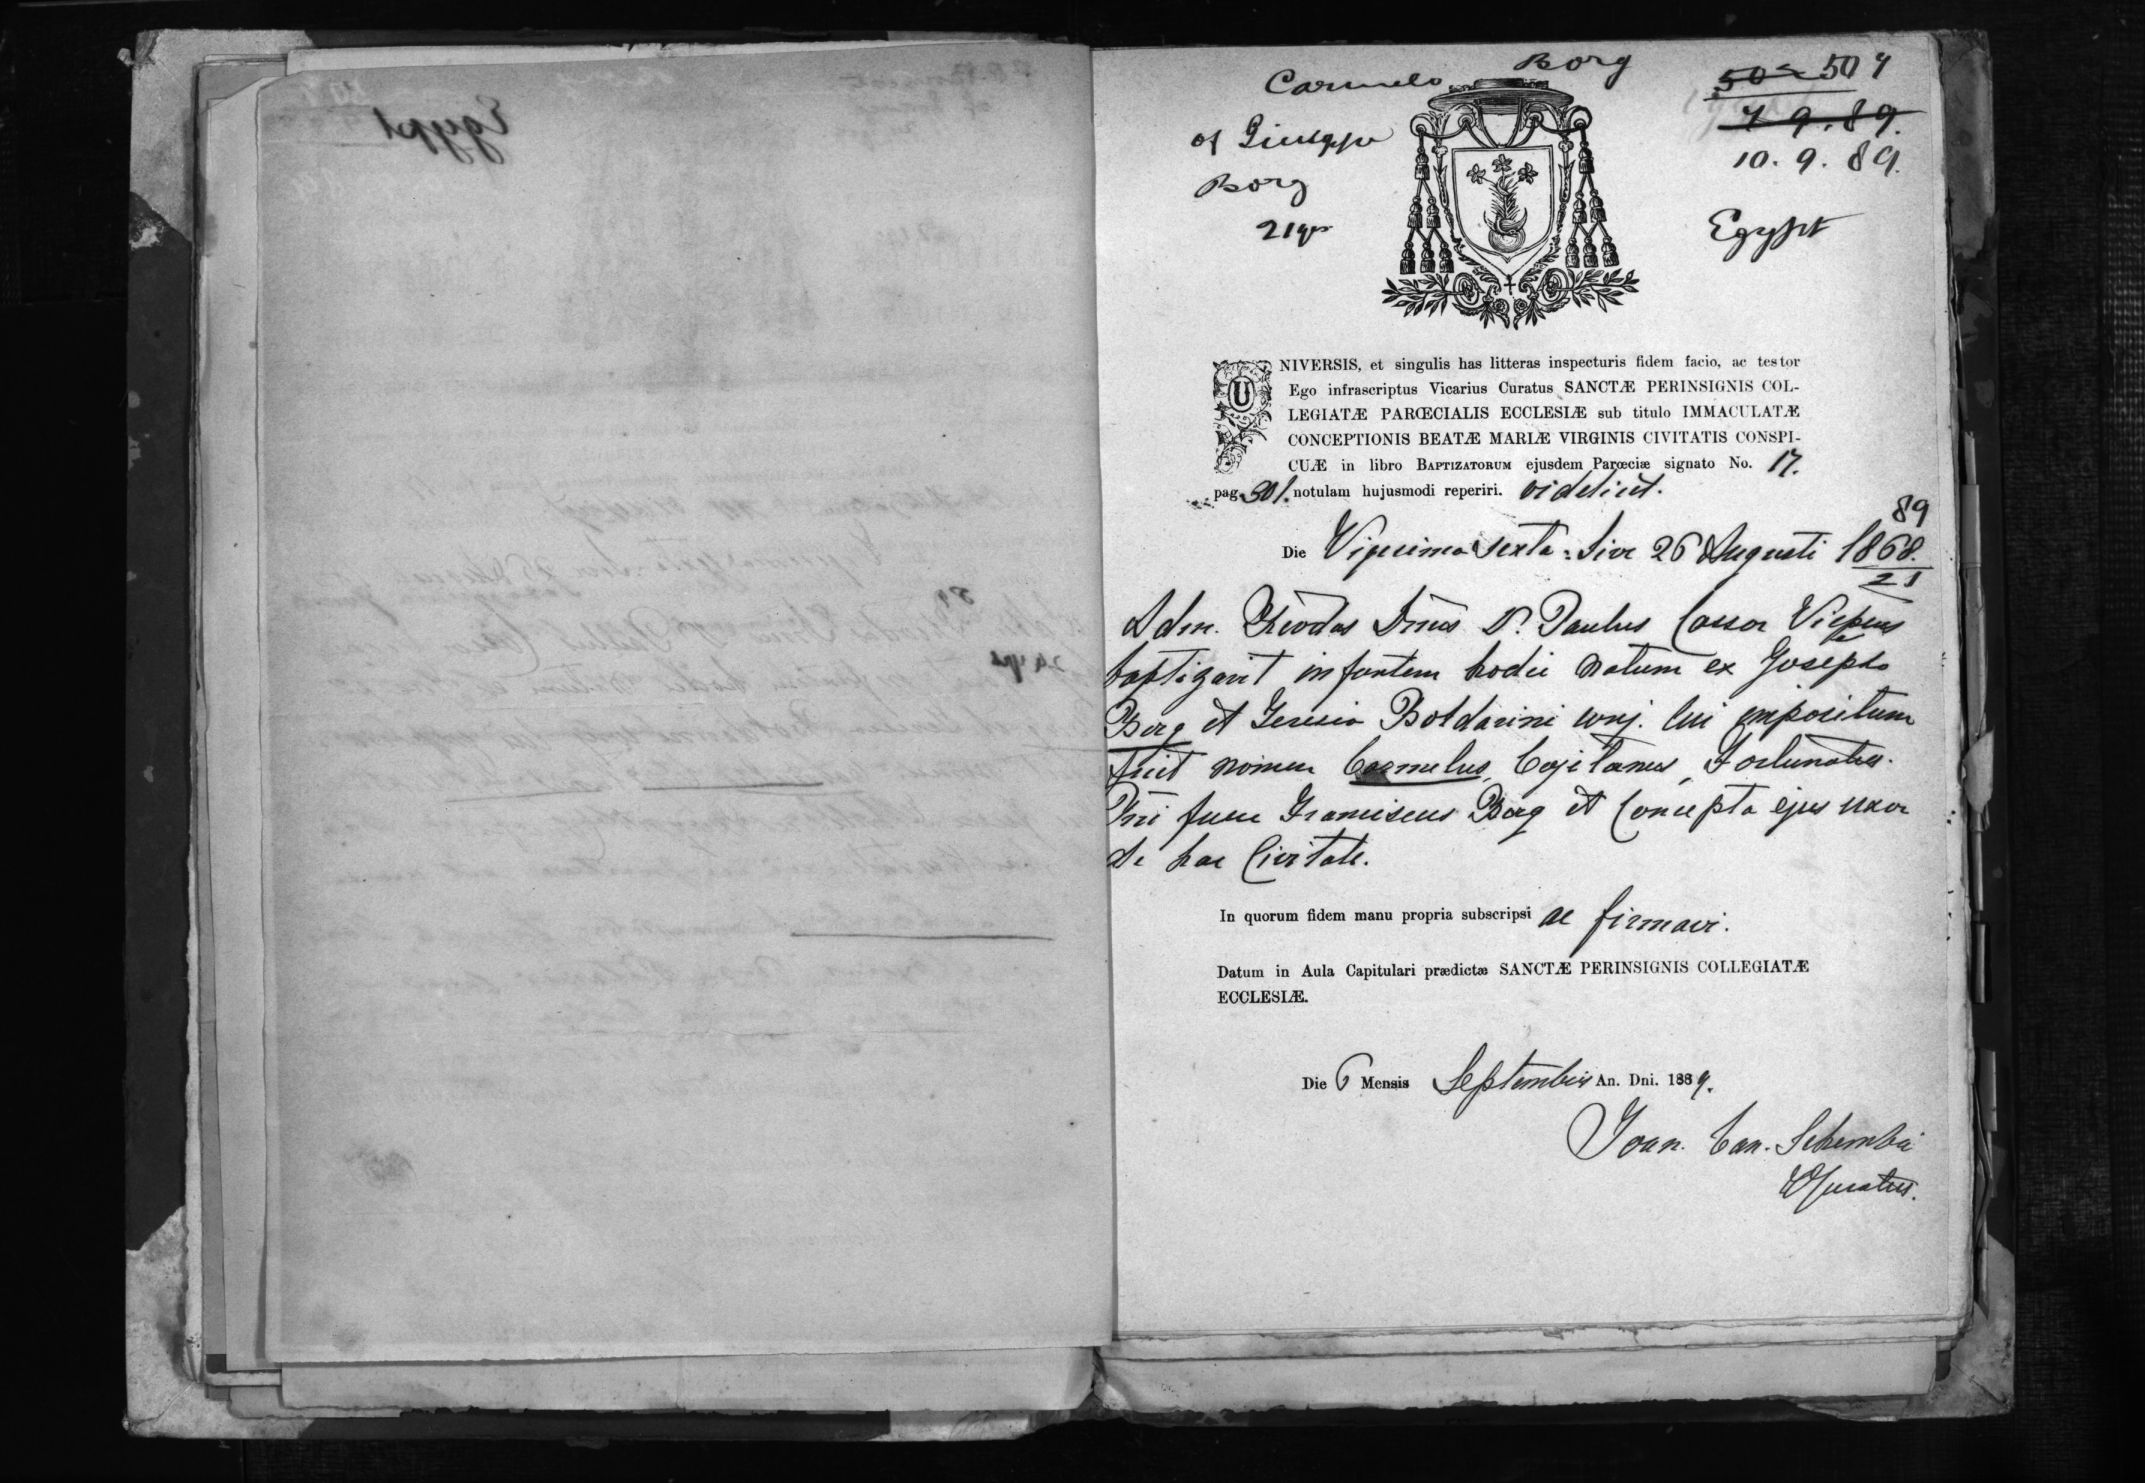 Egypt
Carmelo Borg
of Giuseppe
Borg
21 yrs
50 504
7. 9. 89.
10. 9. 89.
Egypt
UNIVERSIS, et singulis has litteras inspecturis fidem facio, ac testor
Ego infrascriptus Vicarius Curatus SANCTÆ PERINSIGNIS COL-
LEGIATÆ PARŒCIALIS ECCLESIÆ sub titulo IMMACULATÆ
CONCEPTIONIS BEATÆ MARIÆ VIRGINIS CIVITATIS CONSPI-
CUÆ in libro BAPTIZATORUM ejusdem Parœciæ signato No. 17.
pag. 301. notulam hujusmodi reperiri. videlicet.
89
Die Vigesima sexta: sive 26 Augusti 1868.
21
Adm. Rñdus Dñus D. Paulus Cassar Viceparus
baptizavit infantem hodie natum ex Josepho
Borg et Teresia Boldarini conj. Cui impositum
fuit nomen Carmelus, Cajetanus, Fortunatus.
Pñi fuere Franciscus Borg et Concepta ejus uxor
de hac Civitate.
In quorum fidem manu propria subscripsi ac firmavi.
Datum in Aula Capitulari prædictæ SANCTÆ PERINSIGNIS COLLEGIATÆ
ECCLESIÆ.
Die 6 Mensis Septembris An. Dni. 1889.
Joan. Can. Schembri
Curatus.